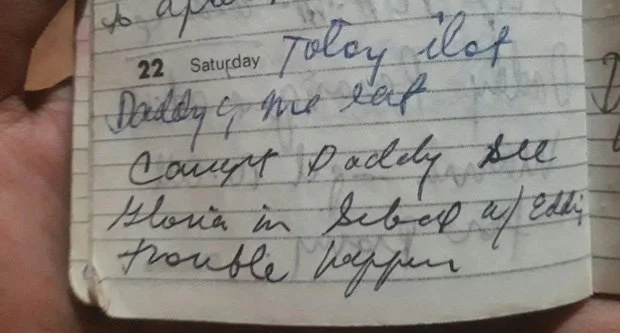 22 Saturday Totoy ilot
Daddy & me eat
Daddy see
Gloria in School w/ Eddie
trouble happen